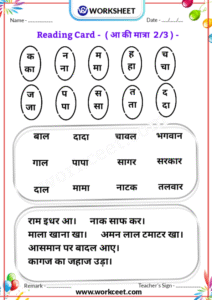 WORKSHEET
Name - Date - .../.../...
Reading Card - ( आ की मात्रा 2/3 ) -
क न म ह च
का ना मा हा चा
ज प स त द
जा पा सा ता दा
बाल दादा चावल भगवान
गाल पापा सागर सरकार
दाल मामा नाटक तलवार
राम इधर आ। नाक साफ कर।
माला खाना खा। अमन लाल टमाटर खा।
आसमान पर बादल आए।
कागज का जहाज उड़ा।
Remark - Teacher's Sign -
www.workceet.com